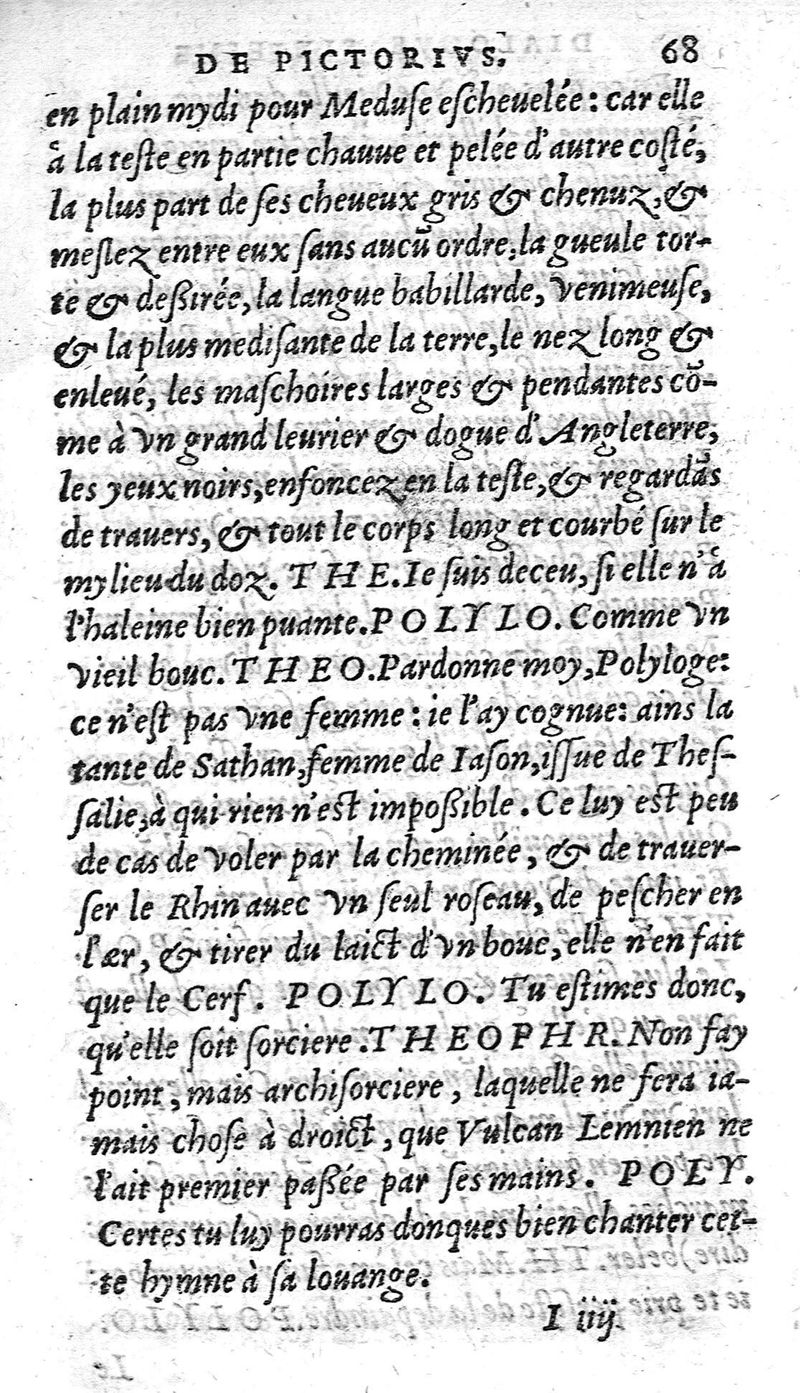 DE PICTORIVS. 68
en plain mydi pour Meduſe eſcheuelée : car elle
à la teſte en partie chauue et pelée d'autre coſté,
la plus part de ſes cheueux gris & chenuz, &
meſlez entre eux ſans aucũ ordre, la gueule tor-
te & deßirée, la langue babillarde, venimeuſe,
& la plus mediſante de la terre, le nez long &
enleué, les maſchoires larges & pendantes cõ-
me à vn grand leurier & dogue d'Angleterre,
les yeux noirs, enfoncez en la teſte, & regardãs
de trauers, & tout le corps long et courbé ſur le
mylieu du doz. THE. Ie ſuis deceu, ſi elle n'à
l'haleine bien puante. POLYLO. Comme vn
vieil bouc. THEO. Pardonne moy, Polyloge:
ce n'eſt pas vne femme : ie l'ay cognue: ains la
tante de Sathan, femme de Iaſon, iſſue de Theſ-
ſalie, à qui rien n'eſt impoßible. Ce luy eſt peu
de cas de voler par la cheminée, & de trauer-
ſer le Rhin auec vn ſeul roſeau, de peſcher en
l'ær, & tirer du laict d'vn bouc, elle n'en fait
que le Cerf. POLYLO. Tu eſtimes donc,
qu'elle ſoit ſorciere. THEOPHR. Non fay
point, mais archiſorciere, laquelle ne fera ia-
mais choſe à droict, que Vulcan Lemnien ne
l'ait premier paßée par ſes mains. POLY.
Certes tu luy pourras donques bien chanter cet-
te hymne à ſa louange.
I iiij